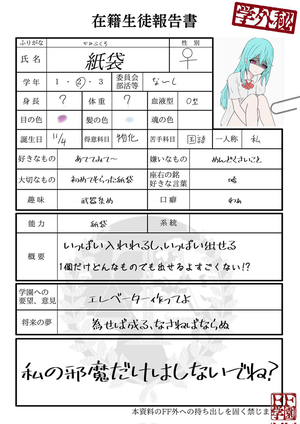 在籍生徒報告書
学外秘
ふりがな かみぶくろ 性別
氏名 紙袋 ♀
学年 1・②・3 委員会 部活等 なーし
身長 ? 体重 ? 血液型 O型
目の色 髪の色 魂の色
誕生日 11/4 得意科目 物化 苦手科目 国語 一人称 私
好きなもの あててみて〜 嫌いなもの めんどくさいこと
大切なもの 初めてもらった紙袋 座右の銘 好きな言葉 嘘
趣味 武器集め 口癖 わぁ
能力 紙袋 系統
概要 いっぱい入れれるし、いっぱい出せる
1個だけどんなものでも出せるよすごくない!?
学園への 要望、意見 エレベーター作ってよ
将来の夢 為せば成る、なさねばならぬ
私の邪魔だけはしないでね?
本資料のFF外への持ち出しを固く禁じま
FF学園